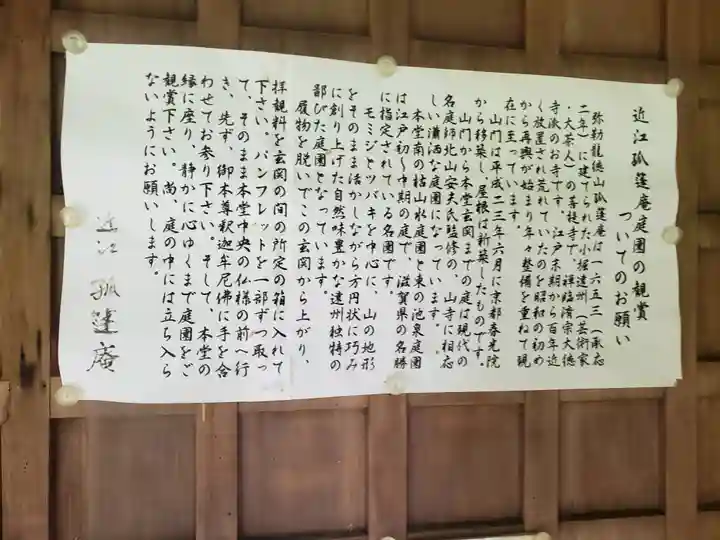 近江孤篷庵庭園の観賞
ついてのお願い
弥勒龍徳山孤篷庵は一六五三(承応
二年)に建てられた小堀遠州(芸術家
・大茶人)の菩提寺で、禅臨済宗大徳
寺派のお寺です。江戸末期から百年近
く放置され荒れていたのを昭和の初め
から再興が始まり年々整備を重ねて現
在に至っています。
山門は平成二三年六月に京都春光院
から移築し、屋根は新築したものです。
山門から本堂玄関までの庭は現代の
名庭師北山安夫氏監修の、山寺に相応
しい瀟洒な庭園になっています。
本堂南の枯山水庭園と東の池泉庭園
は江戸初〜中期の庭で、滋賀県の名勝
に指定されている名園です。
モミジとツバキを中心に、山の地形
をそのまま活かしながら方円状に巧み
に創り上げた自然味豊かな遠州独特の
鄙びた庭園となっています。
履物を脱いでこの玄関から上がり、
拝観料を玄関の間の所定の箱に入れて
下さい。パンフレットを一部ずつ取っ
て、そのまま本堂中央の仏様の前へ行
き、先ず、御本尊釈迦牟尼佛に手を合
わせてお参り下さい。そして、本堂の
縁に座り、静かに心ゆくまで庭園をご
観賞下さい。尚、庭の中には立ち入ら
ないようにお願いします。
近江 孤篷庵